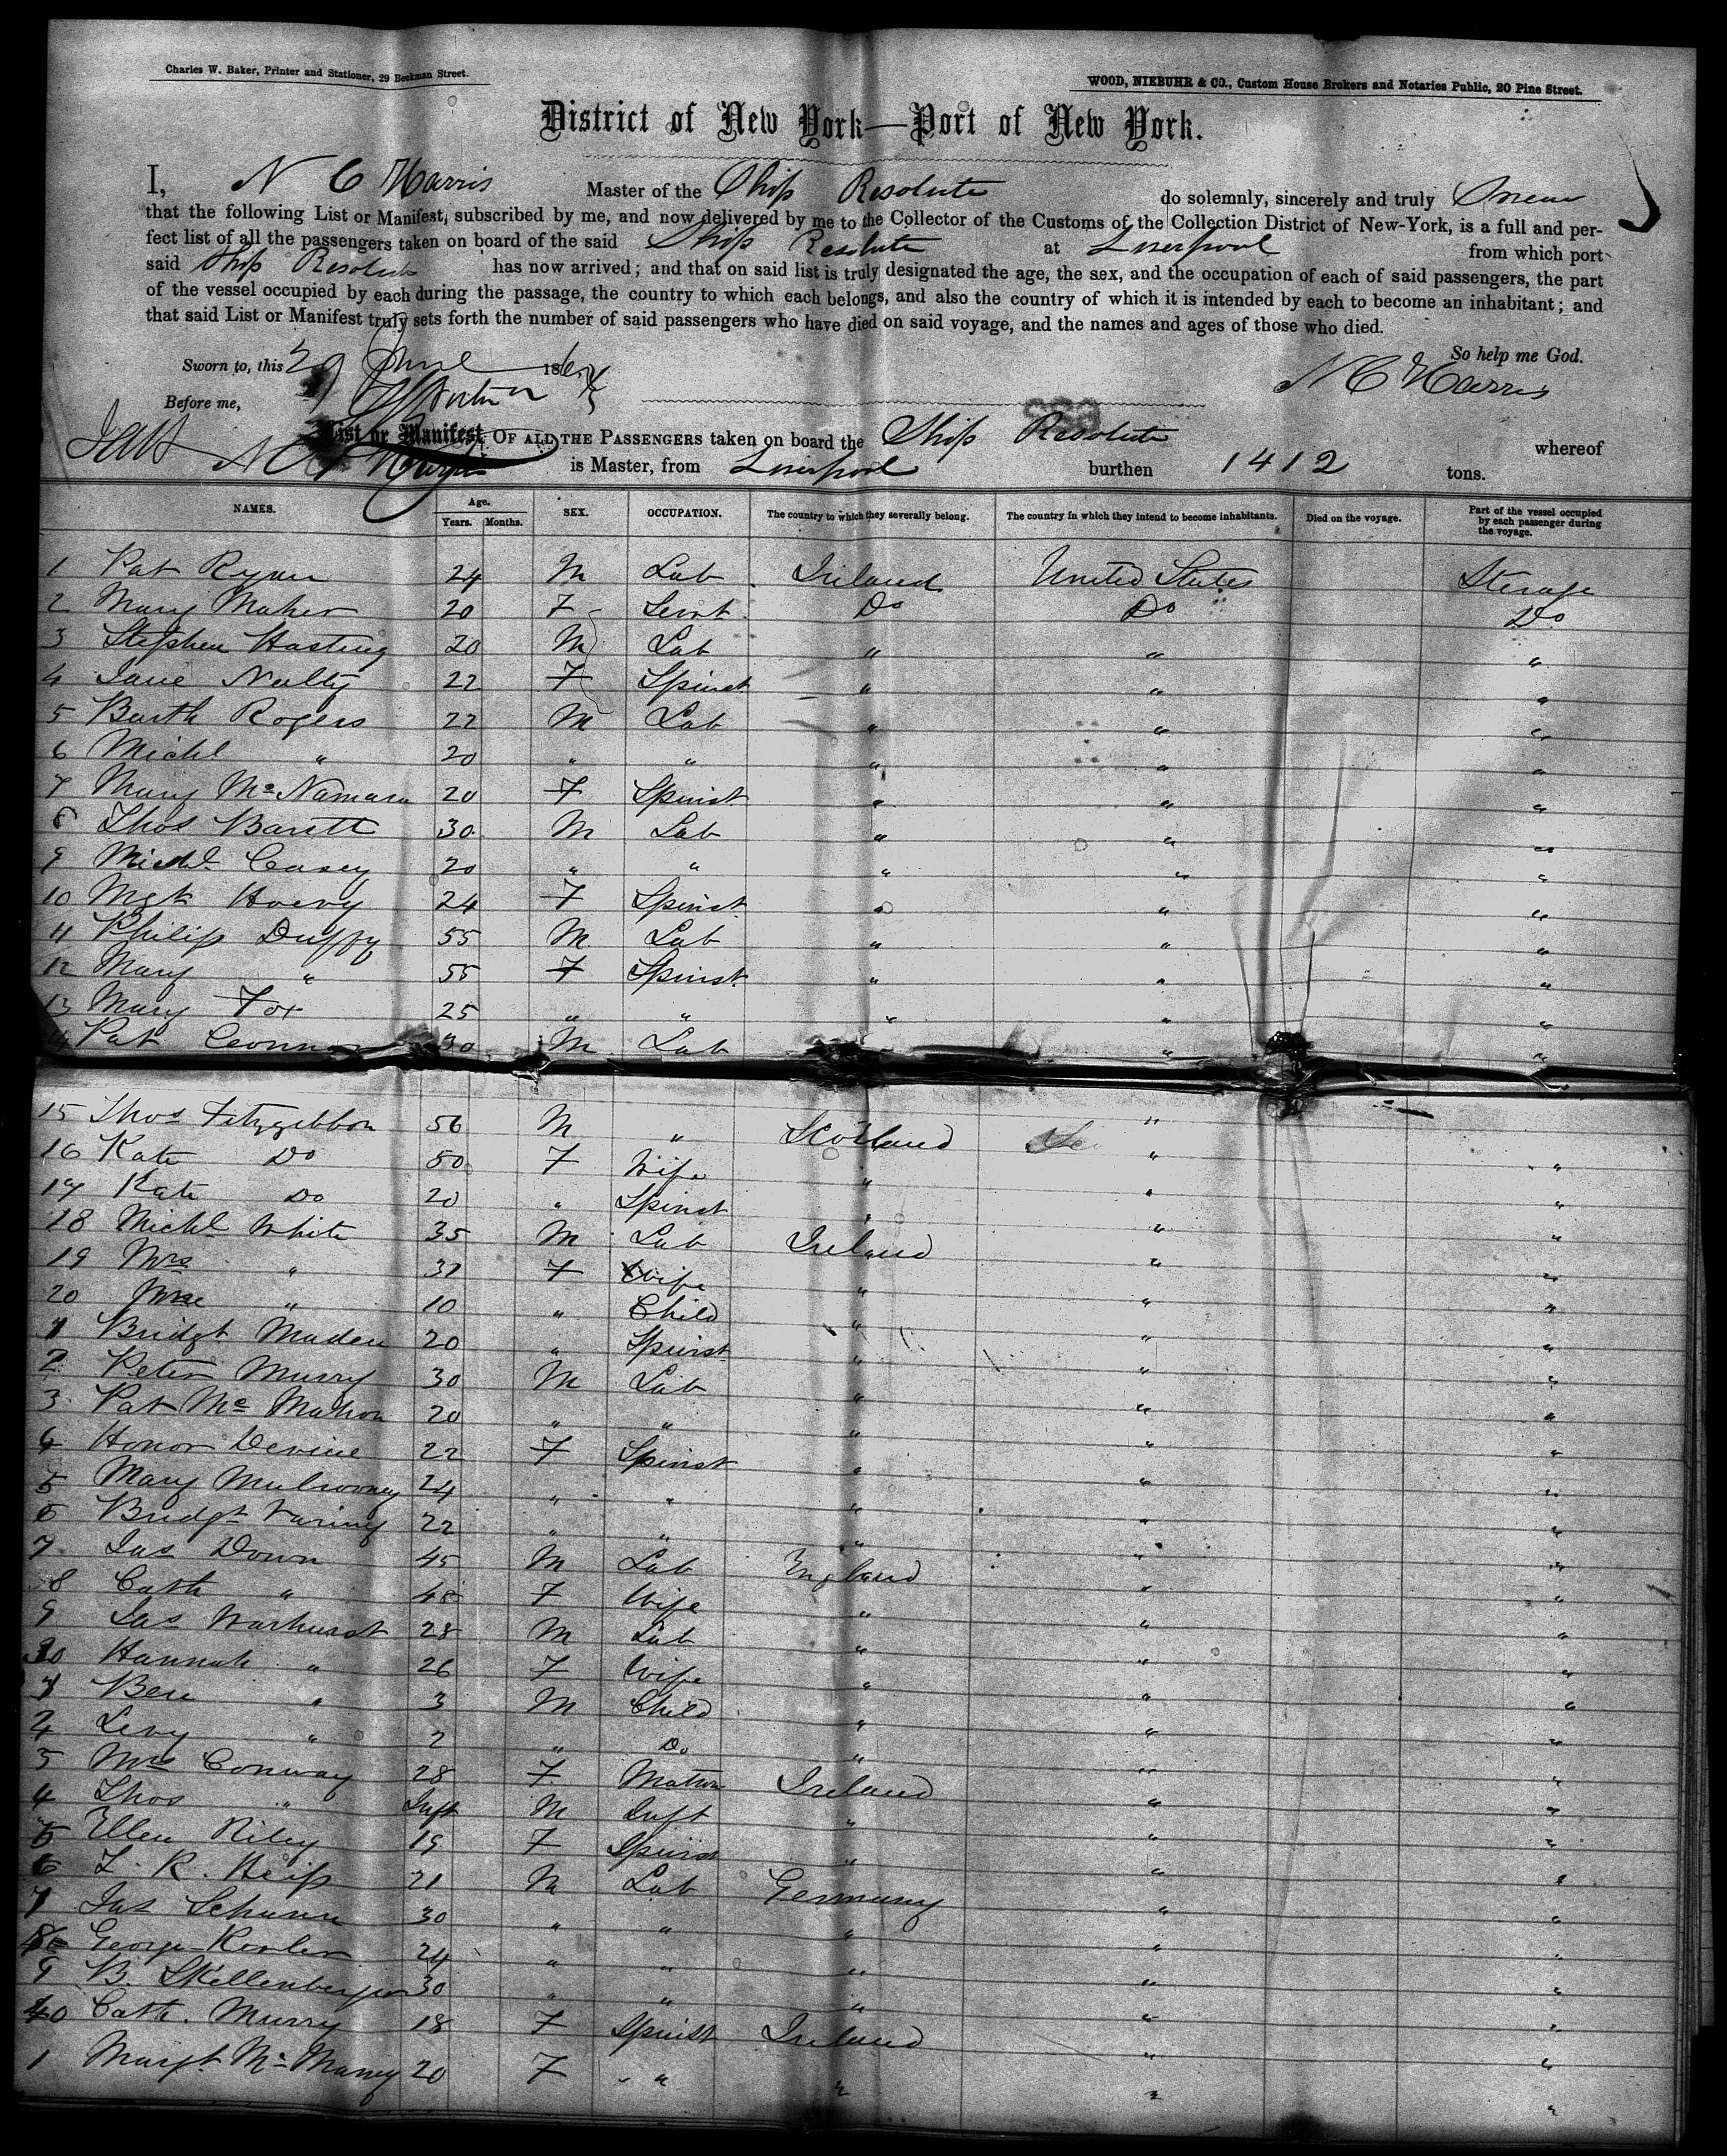 Charles W. Baker, Printer and Stationer, 29 Beekman Street.
WOOD, NIEBUHR & CO., Custom House Brokers and Notaries Public, 20 Pine Street.
District of New York—Port of New York.
I, N C Harris Master of the Ship Resolute do solemnly, sincerely and truly Swear
that the following List or Manifest, subscribed by me, and now delivered by me to the Collector of the Customs of the Collection District of New-York, is a full and per-
fect list of all the passengers taken on board of the said Ship Resolute at Liverpool from which port
said Ship Resolute has now arrived; and that on said list is truly designated the age, the sex, and the occupation of each of said passengers, the part
of the vessel occupied by each during the passage, the country to which each belongs, and also the country of which it is intended by each to become an inhabitant; and
that said List or Manifest truly sets forth the number of said passengers who have died on said voyage, and the names and ages of those who died.
So help me God.
Sworn to, this 29 June 1864
N C Harris
Before me,
List or Manifest OF ALL THE PASSENGERS taken on board the Ship Resolute whereof
is Master, from Liverpool burthen 1412 tons.
NAMES. Age. Years. Months. SEX. OCCUPATION. The country to which they severally belong. The country in which they intend to become inhabitants. Died on the voyage. Part of the vessel occupied by each passenger during the voyage.
1 Pat Ryan 24 M Lab Ireland United States Sterage
2 Mary Maher 20 F Servt Do Do Do
3 Stephen Hasting 20 M Lab " " "
4 Jane Nulty 22 F Spinst " " "
5 Barth Rogers 22 M Lab " " "
6 Michl " 20 " " " " "
7 Mary McNamara 20 F Spinst " " "
8 Thos Barett 30 M Lab " " "
9 Michl Casey 20 " " " " "
10 Mgt Hoevy 24 F Spinst " " "
11 Philip Duffy 55 M Lab " " "
12 Mary " 55 F Spinst " " "
13 Mary Fox 25 " " " " "
14 Pat 30 M Lab " "
15 Thos Fitzgibbon 56 M " Scotland "
16 Kate Do 50 F Wife " " "
17 Kate Do 20 " Spinst " " "
18 Michl White 35 M Lab Ireland " "
19 Mrs " 31 F Wife " " "
20 " 10 " Child " " "
1 Bridgt Maden 20 " Spinst " " "
2 Peter Murry 30 M Lab " " "
3 Pat McMahon 20 " " " " "
4 Honor Devine 22 F Spinst " " "
5 Mary Mulrooney 24 " " " " "
6 Bridgt 22 " " " " "
7 Jas Down 45 M Lab England " "
8 Cath " 48 F Wife " " "
9 Jas Warhurst 28 M Lab " " "
30 Hannah " 26 F Wife " " "
1 Ben " 3 M Child " " "
2 Levy " 2 " Do " " "
3 Mrs Conway 28 F Matron Ireland " "
4 Thos " Inft M Inft " " "
5 Ellen Riley 19 F Spinst " " "
6 Heiss 21 M Lab Germany " "
7 Schunn 30 " " " " "
8 George 24 " " " " "
9 B. Skellenberger 30 " " " " "
40 Cath. Murry 18 F Spinst Ireland " "
1 Margt 20 F " " " "